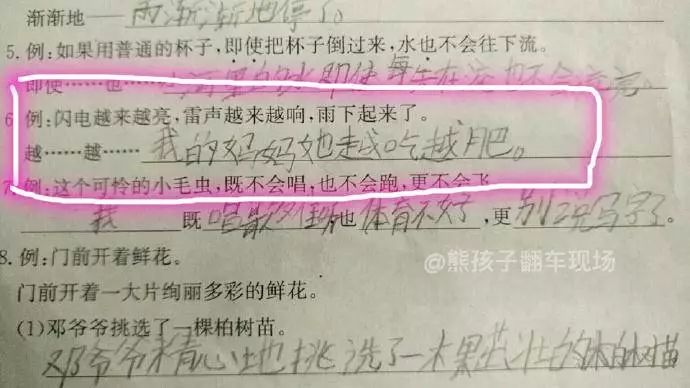 渐渐地——雨渐渐地停了。
5. 例:如果用普通的杯子,即使把杯子倒过来,水也不会往下流。
即使……也……即使每年在流也不会流完。
6. 例:闪电越来越亮,雷声越来越响,雨下起来了。
越……越……我的妈妈她越吃越肥。
7. 例:这个可怜的小毛虫,既不会唱,也不会跑,更不会飞
我既唱歌也体育不好,更别说写字了。
@熊孩子翻车现场
8. 例:门前开着鲜花。
门前开着一大片绚丽多彩的鲜花。
(1)邓爷爷挑选了一棵柏树苗。
邓爷爷精心地挑选了一棵茁壮的柏树苗